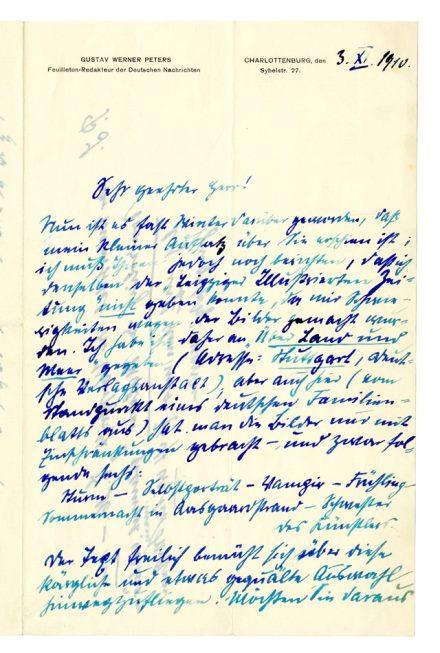 GUSTAV WERNER PETERS
Feuilleton-Redakteur der Deutschen Nachrichten
CHARLOTTENBURG, den 3. XI. 1910.
Sybelstr. 27.
Sehr geehrter Herr!
Nun ist es fast Winter darüber geworden, daß
mein kleiner Aufsatz über Sie erschienen ist;
ich muß Ihnen jedoch noch berichten, daß ich
denselben der Leipziger Illustrierten Zei-
tung nicht geben konnte, da mir Schwie-
rigkeiten wegen der Bilder gemacht wur-
den. Ich habe ihn daher an Über Land und
Meer gegeben (Adresse: Stuttgart, Deut-
sche Verlagsanstalt), aber auch hier (vom
Standpunkt eines deutschen Familien-
blatts aus) hat man die Bilder nur mit
Einschränkungen gebracht – und zwar fol-
gende sechs:
Sturm – Selbstporträt – Vampir – Frühling –
Sommernacht in Aasgaardstrand – Schwester
des Künstlers
Der Text freilich bemüht sich über diese
kärgliche und etwas gequälte Auswahl
hinwegzufliegen. Möchten Sie daraus